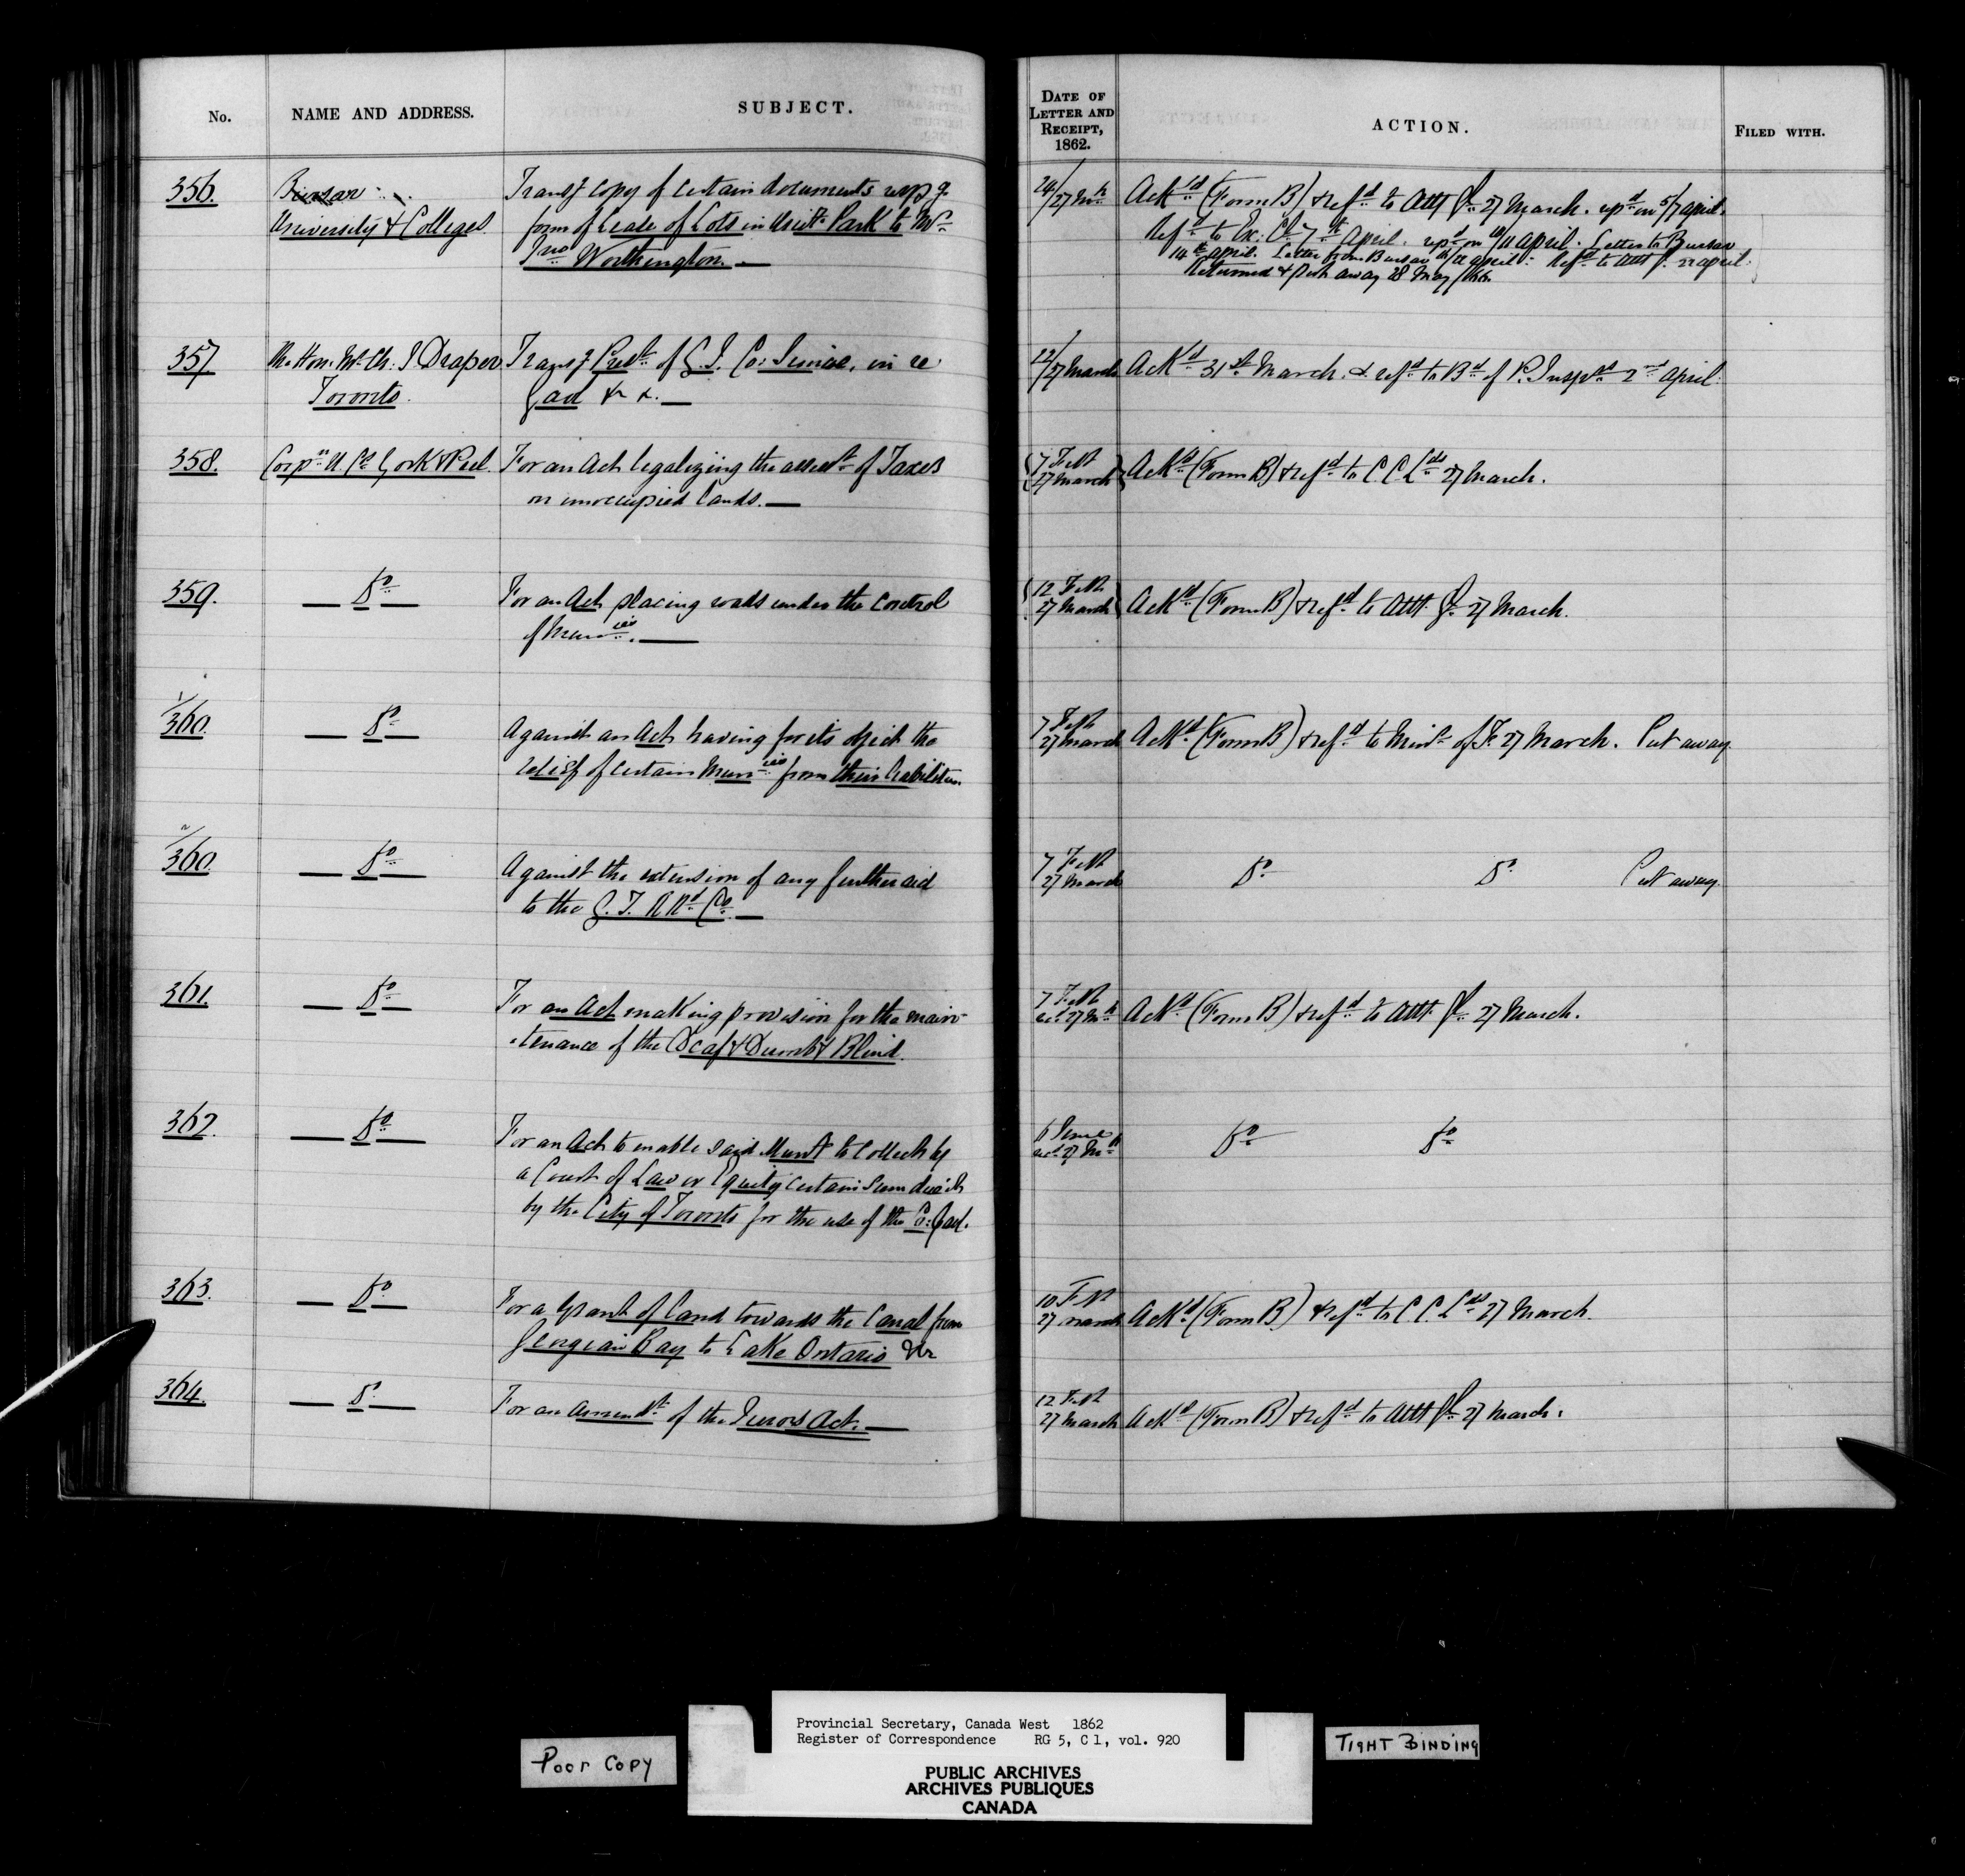 No.
NAME AND ADDRESS.
SUBJECT.
DATE OF
LETTER AND
RECEIPT,
1862.
ACTION.
FILED WITH.
356.
Bursar
University & Colleges.
Transg copy of certain documents respg
form of Lease of Lots in Univ. Park to Mr.
Jno Worthington. —
24/27 Mch
Ackd (Form B) & refd to Att Gl 27 March. repd on 5/7 april.
Refd to Ex: Cl 7th April. repd on 10/11 april. Letter to Bursar
14th april. Letter from Bursar april. Refd to Att G. 22 april.
Returned & Put away 28 May /66.
357
The Hon. Mr. Ch. J Draper
Toronto.
Transg Predt of G. J. Co: Simcoe, in re
Gaol &c &. —
22/27 March
Ackd 31st March. & refd to Bd of P. Insprs 2nd april.
358.
Corpn U. Cs York & Peel.
For an Act legalizing the assest of Taxes
on unoccupied lands. —
7 Feb
27 March
Ackd (Form B) & refd to C. C. Lds 27 March.
359.
— Do —
For an Act placing roads under the control
of Municies. —
12 Feb
27 March
Ackd (Form B) & refd to Att. Gl. 27 March.
1/360.
— Do —
Against an Act having for its object the
relief of certain Municies from their liabilities.
7 Feb
27 March
Ackd (Form B) & refd to Minr of F. 27 March. Put away
2/360
— Do —
Against the extension of any further aid
to the G. T. R Rd Co. —
7 Feb
27 March
Do Do Put away.
361.
— Do —
For an Act making provision for the main-
tenance of the Deaf & Dumb & Blind.
7 Feb
rec. 27 Mch
Ackd (Form B) & refd to Att. Gl. 27 March.
362.
— Do —
For an Act to enable said Munty to collect by
a Court of Law or Equity certain sum due it
by the City of Toronto for the use of the Co: Gaol.
recd 27 Mch
Do Do
363.
— Do —
For a Grant of Land towards the Canal from
Georgian Bay to Lake Ontario &c
10 Feb
27 March
Ackd (Form B) & refd to C C. Lds 27 March.
364.
— Do —
For an Amendt of the Jurors Act. —
12 Feb
27 March
Ackd (Form B) & refd to Att Gl 27 March.
Poor Copy
Provincial Secretary, Canada West 1862
Register of Correspondence RG 5, C 1, vol. 920
PUBLIC ARCHIVES
ARCHIVES PUBLIQUES
CANADA
TIGHT BINDING